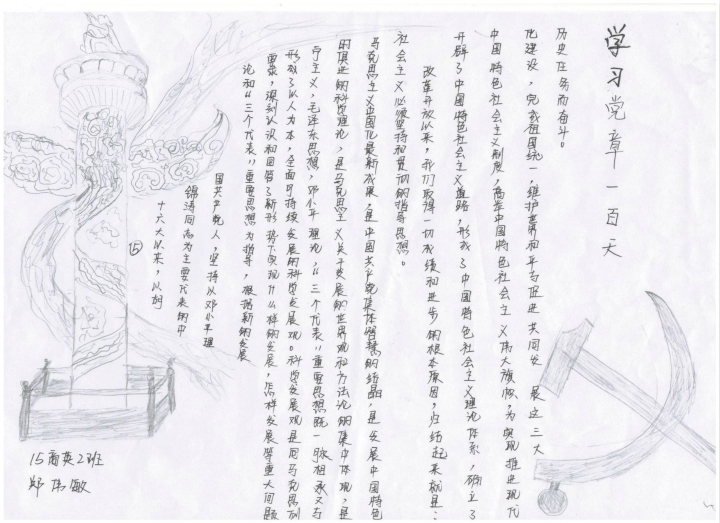 学习党章一百天
⑮
十六大以来，以胡
锦涛同志为主要代表的中
国共产党人，坚持以邓小平理
论和“三个代表”重要思想为指导，根据新的发展
要求，深刻认识和回答了新形势下实现什么样的发展，怎样发展等重大问题
形成了以人为本，全面可持续发展的科学发展观。科学发展观是同马克思列
宁主义，毛泽东思想，邓小平理论，“三个代表”重要思想既一脉相承又与
时俱进的科学理论，是马克思主义关于发展的世界观和方法论的集中体现，是
马克思主义中国化最新成果，是中国共产党集体智慧的结晶，是发展中国特色
社会主义必须坚持和贯彻的指导思想。
改革开放以来，我们取得一切成绩和进步的根本原因，归结起来就是：
开辟了中国特色社会主义道路，形成了中国特色社会主义理论体系，确立了
中国特色社会主义制度，高举中国特色社会主义伟大旗帜，为实现推进现代
化建设，完成祖国统一，维护世界和平与促进共同发展这三大
历史任务而奋斗。
15商英2班
郑伟敏